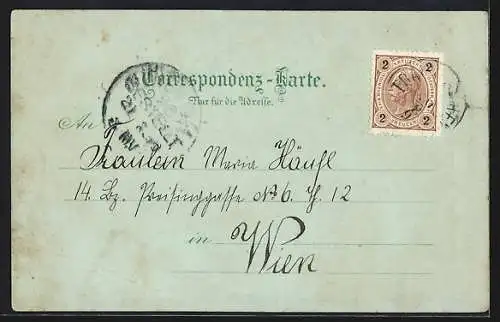 Correspondenz-Karte.
Nur für die Adresse.
2 2
2 2
An
Fräulein Maria Häusl
14. Bz. Preisinggasse No 6. Th. 12
in Wien